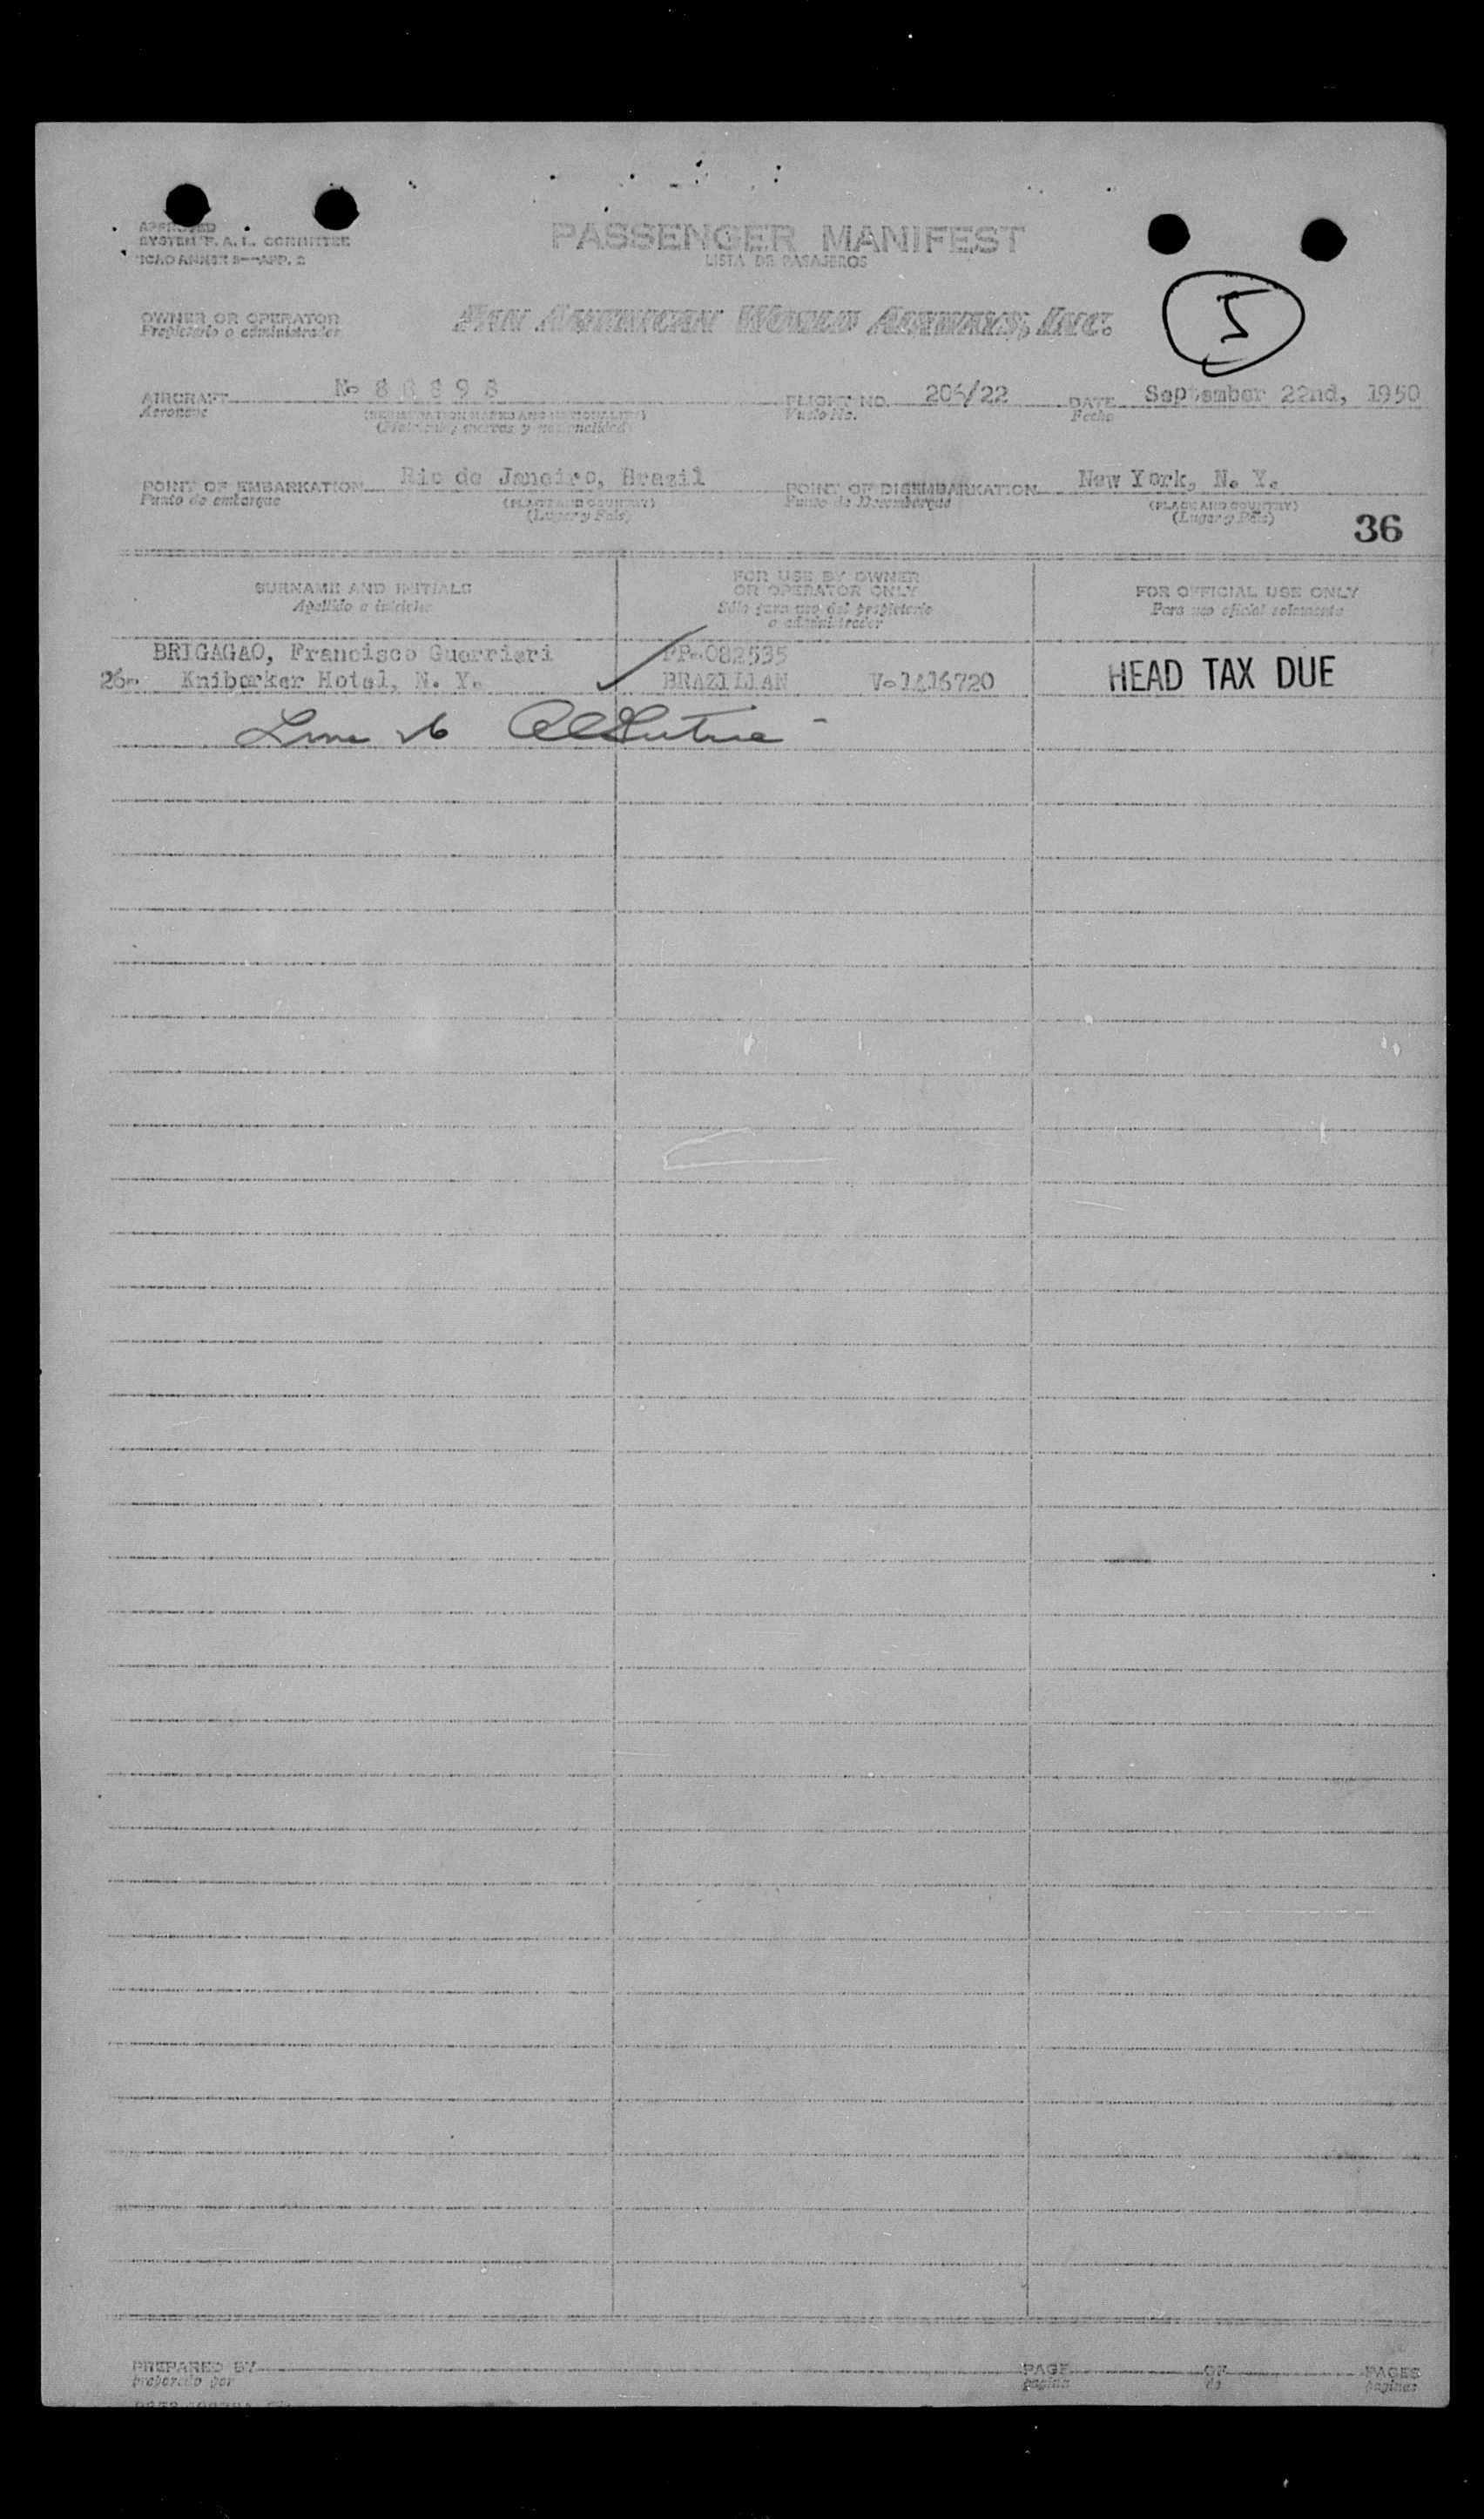 APPROVED
SYSTEM F. A. L. COMMITTEE
ICAO ANNEX 9—APP. 2
PASSENGER MANIFEST
LISTA DE PASAJEROS
5
OWNER OR OPERATOR
Propietario o administrador
PAN AMERICAN WORLD AIRWAYS, INC.
AIRCRAFT N- 8 8 8 9 8 FLIGHT NO. 206/22 DATE September 22nd, 1950
Aeronave (REGISTRATION MARKS AND NATIONALITY) Vuelo No. Fecha
(Matricula, marcas y nacionalidad)
POINT OF EMBARKATION Rio de Janeiro, Brazil POINT OF DISEMBARKATION New York, N. Y.
Punto de embarque (PLACE AND COUNTRY) Punto de Desembarque (PLACE AND COUNTRY)
(Lugar y Pais) (Lugar y Pais)
36
SURNAME AND INITIALS
Apellido e iniciales
FOR USE BY OWNER
OR OPERATOR ONLY
Sólo para uso del propietario
o administrador
FOR OFFICIAL USE ONLY
Para uso oficial solamente
BRIGAGAO, Francisco Guerrieri PP-082535
26- Kniborker Hotel, N. Y. BRAZILIAN V-1416720 HEAD TAX DUE
Line 26
PREPARED BY PAGE OF PAGES
preparado por pagina de paginas